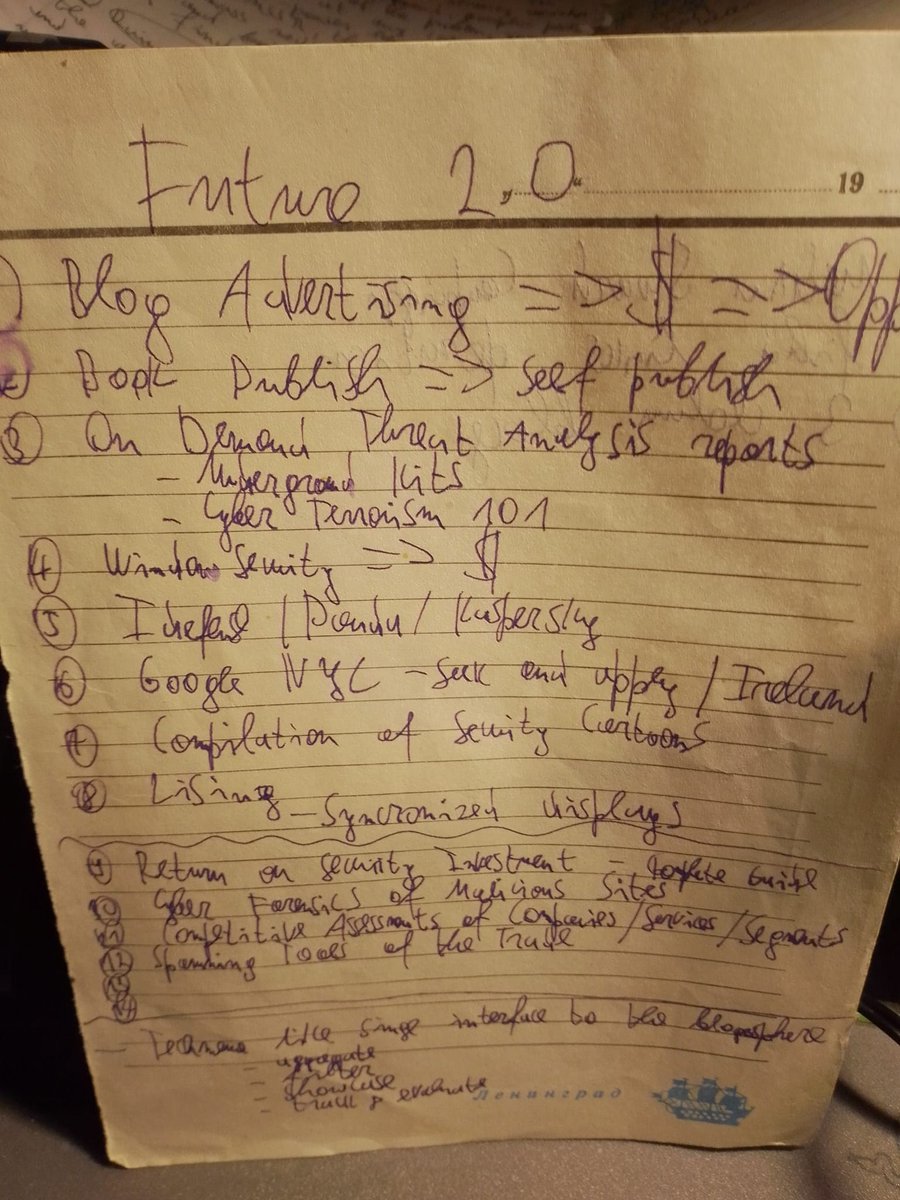 Future 2.0
„ “ 19
1) Blog Advertising => $ => Opp
2 Book Publish => self publish
3 On Demand Threat Analysis reports
- Underground Kits
- Cyber Terrorism 101
4 Window Security => $
5 Idefense / Panda / Kaspersky
6 Google NYC - seek and apply / Ireland
7 Compilation of Security Cartoons
8 - Syncronized displays
9 Return on Security Investment - Guide
10 Cyber Forensics of Malicious Sites
11 Competitive Assessments of Companies / Services / Segments
12 Spamming Tools of the Trade
13
14
- like single interface to the blogosphere
- aggregate
- filter
- showcase
- track & evaluate
Ленинград